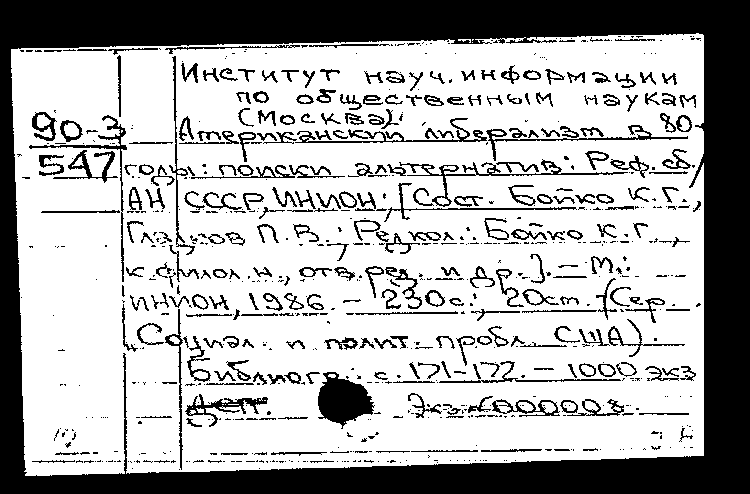 Институт науч. информации
по общественным наукам
(Москва).
90-3 Американский либерализм в 80-
547 годы: поиски альтернатив: Реф. сб./
АН СССР, ИНИОН; [Сост. Бойко К.Г.,
Гладков П.В.; Редкол.: Бойко К.Г.,
к.филол.н., отв.ред. и др.]. - М.:
ИНИОН, 1986. - 230с.; 20см. - (Сер.
"Социал. и полит. пробл. США).
Библиогр.: с. 171-172. - 1000 экз
Деп. Экз.